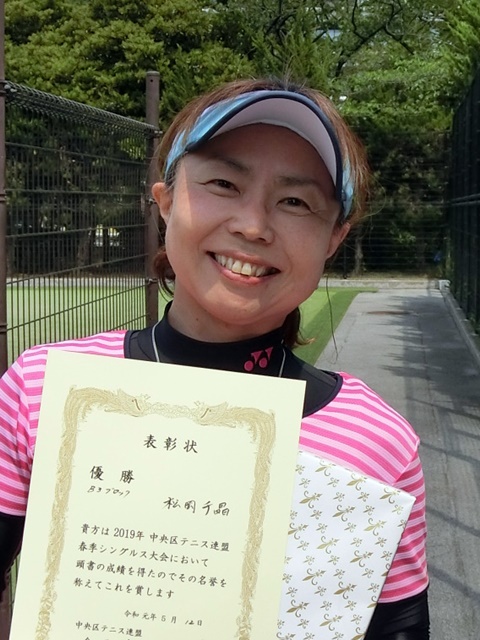 表彰状
優勝
B3ブロック
松岡千晶
貴方は2019年 中央区テニス連盟
春季シングルス大会において
頭書の成績を得たのでその名誉を
称えてこれを賞します
令和元年5月12日
中央区テニス連盟